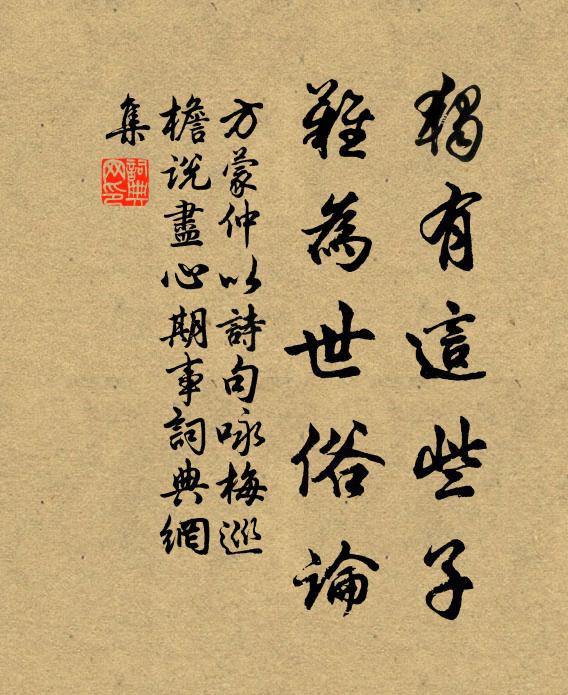 獨有這些子
難為世俗論
方蒙仲以詩句咏梅巡
檐說盡心期事詞典網
集
詞典
网印